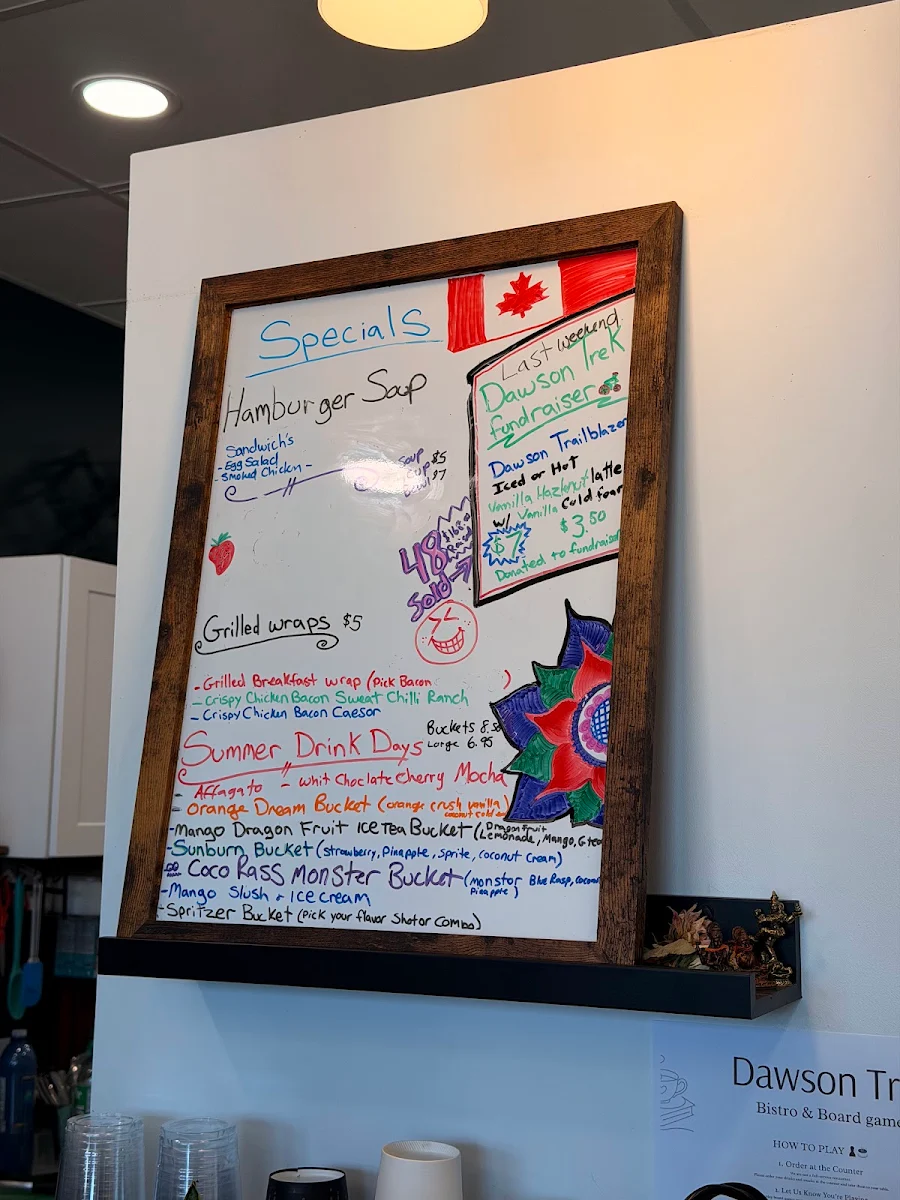 Specials
Hamburger Soup
Sandwich's
- Egg Salad
- Smoked Chicken -
Soup
Cup $5
Bowl $7
Last weekend
Dawson Trek
fundraiser
Dawson Trailblazer
Iced or Hot
Vanilla Hazelnut latte
w/ Vanilla Cold foam
$7
$3.50
Donated to fundraiser
48
Raised
Sold
Grilled wraps $5
- Grilled Breakfast wrap (Pick Bacon )
- Crispy Chicken Bacon Sweat Chilli Ranch
- Crispy Chicken Bacon Caesor
Buckets 8.50
Large 6.95
Summer Drink Days
Affagato - Whit Choclate Cherry Mocha
- Orange Dream Bucket (orange crush vanilla
coconut cold
- Mango Dragon Fruit ICE Tea Bucket (Dragon fruit
Lemonade, Mango, G tea
- Sunburn Bucket (strawberry, Pinapple, sprite, coconut cream)
Coco Rass Monster Bucket (monstor Blue Rasp, coconut
Pineapple)
- Mango Slush + Ice cream
- Spritzer Bucket (Pick your flavor Shot or Combo)
Dawson Tr
Bistro & Board game
HOW TO PLAY
1. Order at the Counter
2. Let Us Know You're Playing